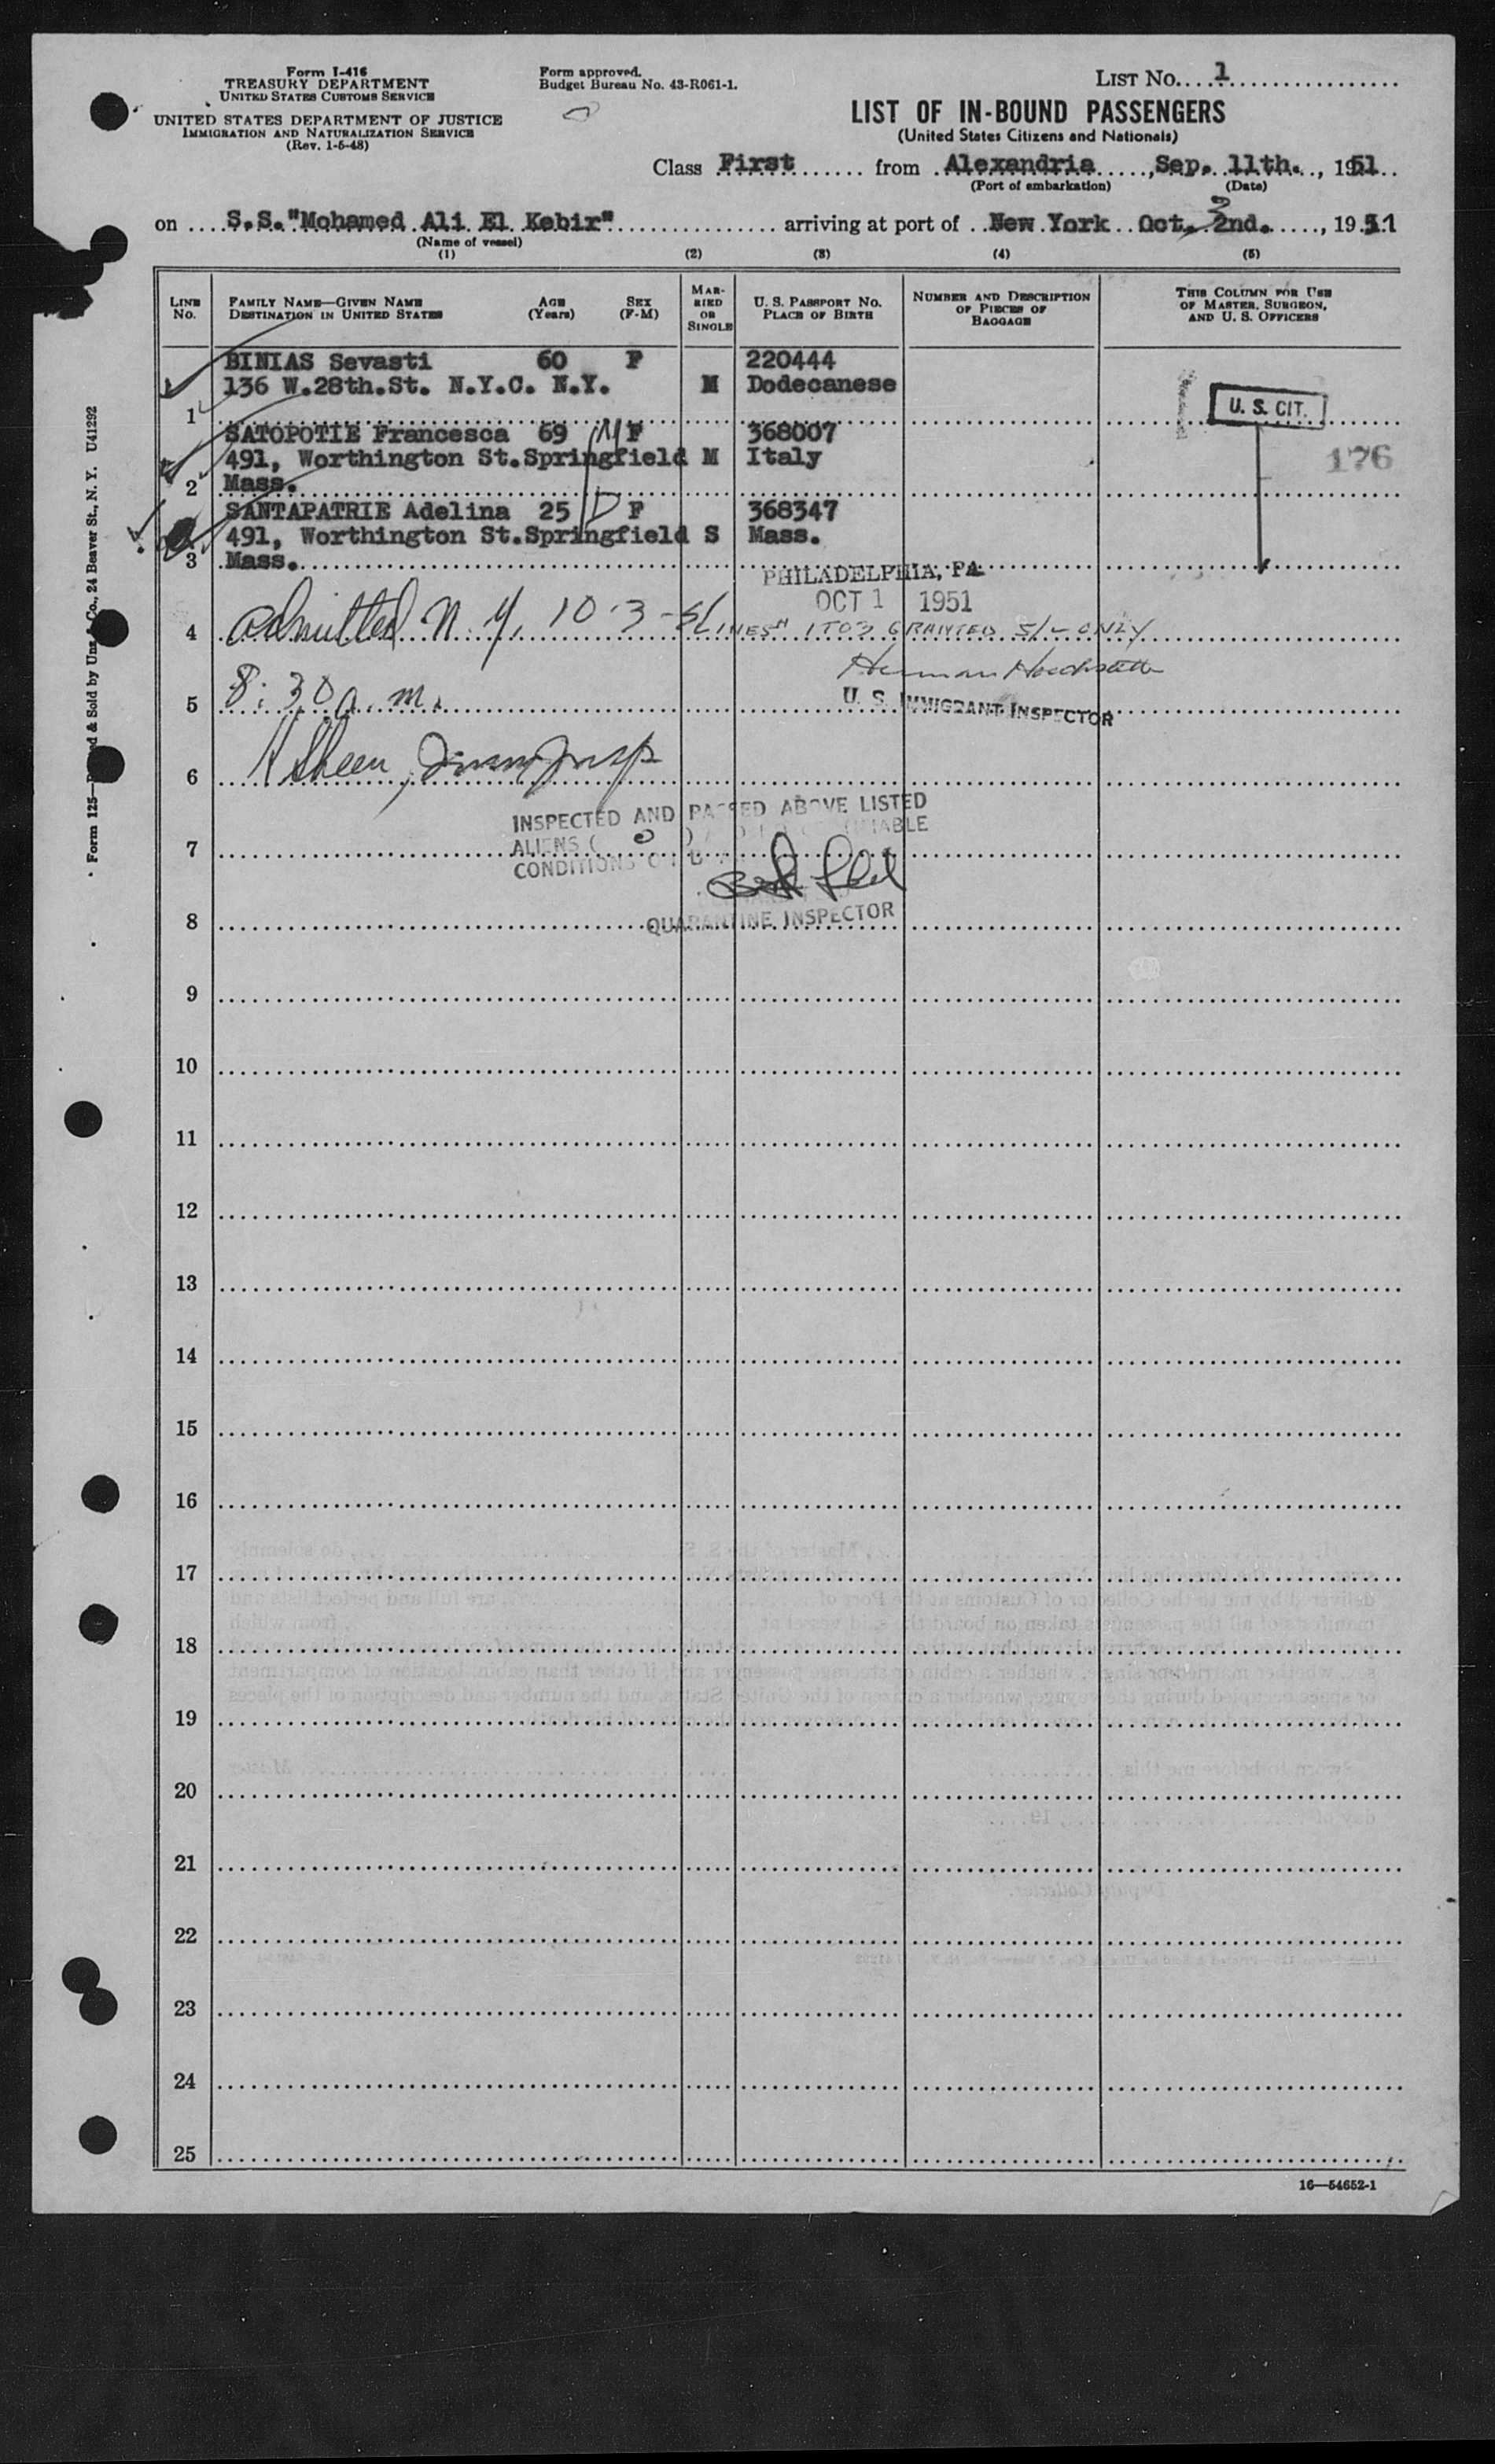 Form I-416
TREASURY DEPARTMENT
UNITED STATES CUSTOMS SERVICE
UNITED STATES DEPARTMENT OF JUSTICE
IMMIGRATION AND NATURALIZATION SERVICE
(Rev. 1-5-48)
Form approved.
Budget Bureau No. 43-R061-1.
LIST No. 1
LIST OF IN-BOUND PASSENGERS
(United States Citizens and Nationals)
Class First from Alexandria, Sep. 11th., 1951
(Port of embarkation) (Date)
on S.S."Mohamed Ali El Kebir" arriving at port of New York Oct. 3 2nd., 1951
(Name of vessel)
(1) (2) (3) (4) (5)
LINE No.
FAMILY NAME—GIVEN NAME DESTINATION IN UNITED STATES
AGE (Years)
SEX (F-M)
MARRIED OR SINGLE
U. S. PASSPORT No. PLACE OF BIRTH
NUMBER AND DESCRIPTION OF PIECES OF BAGGAGE
THIS COLUMN FOR USE OF MASTER, SURGEON, AND U. S. OFFICERS
BINIAS Sevasti 60 F 220444
136 W.28th.St. N.Y.C. N.Y. M Dodecanese
1
U. S. CIT.
SATOPOTIE Francesca 69 M F 368007
491, Worthington St.Springfield M Italy
176
2 Mass.
SANTAPATRIE Adelina 25 D F 368347
491, Worthington St.Springfield S Mass.
3 Mass.
PHILADELPHIA, PA.
OCT 1 1951
4 Admitted N.Y. 10-3-51 LINES 1 TO 3 GRANTED S/L ONLY
Herman
5 8:30 a.m.
U. S. IMMIGRANT INSPECTOR
6 Sheen, Imm Insp
INSPECTED AND PASSED ABOVE LISTED
7 ALIENS ( 0 )
CONDITIONS
QUARANTINE INSPECTOR
8
9
10
11
12
13
14
15
16
17
18
19
20
21
22
23
24
25
16—54652-1
Form 125— & Sold by Unz & Co., 24 Beaver St., N. Y. U41292